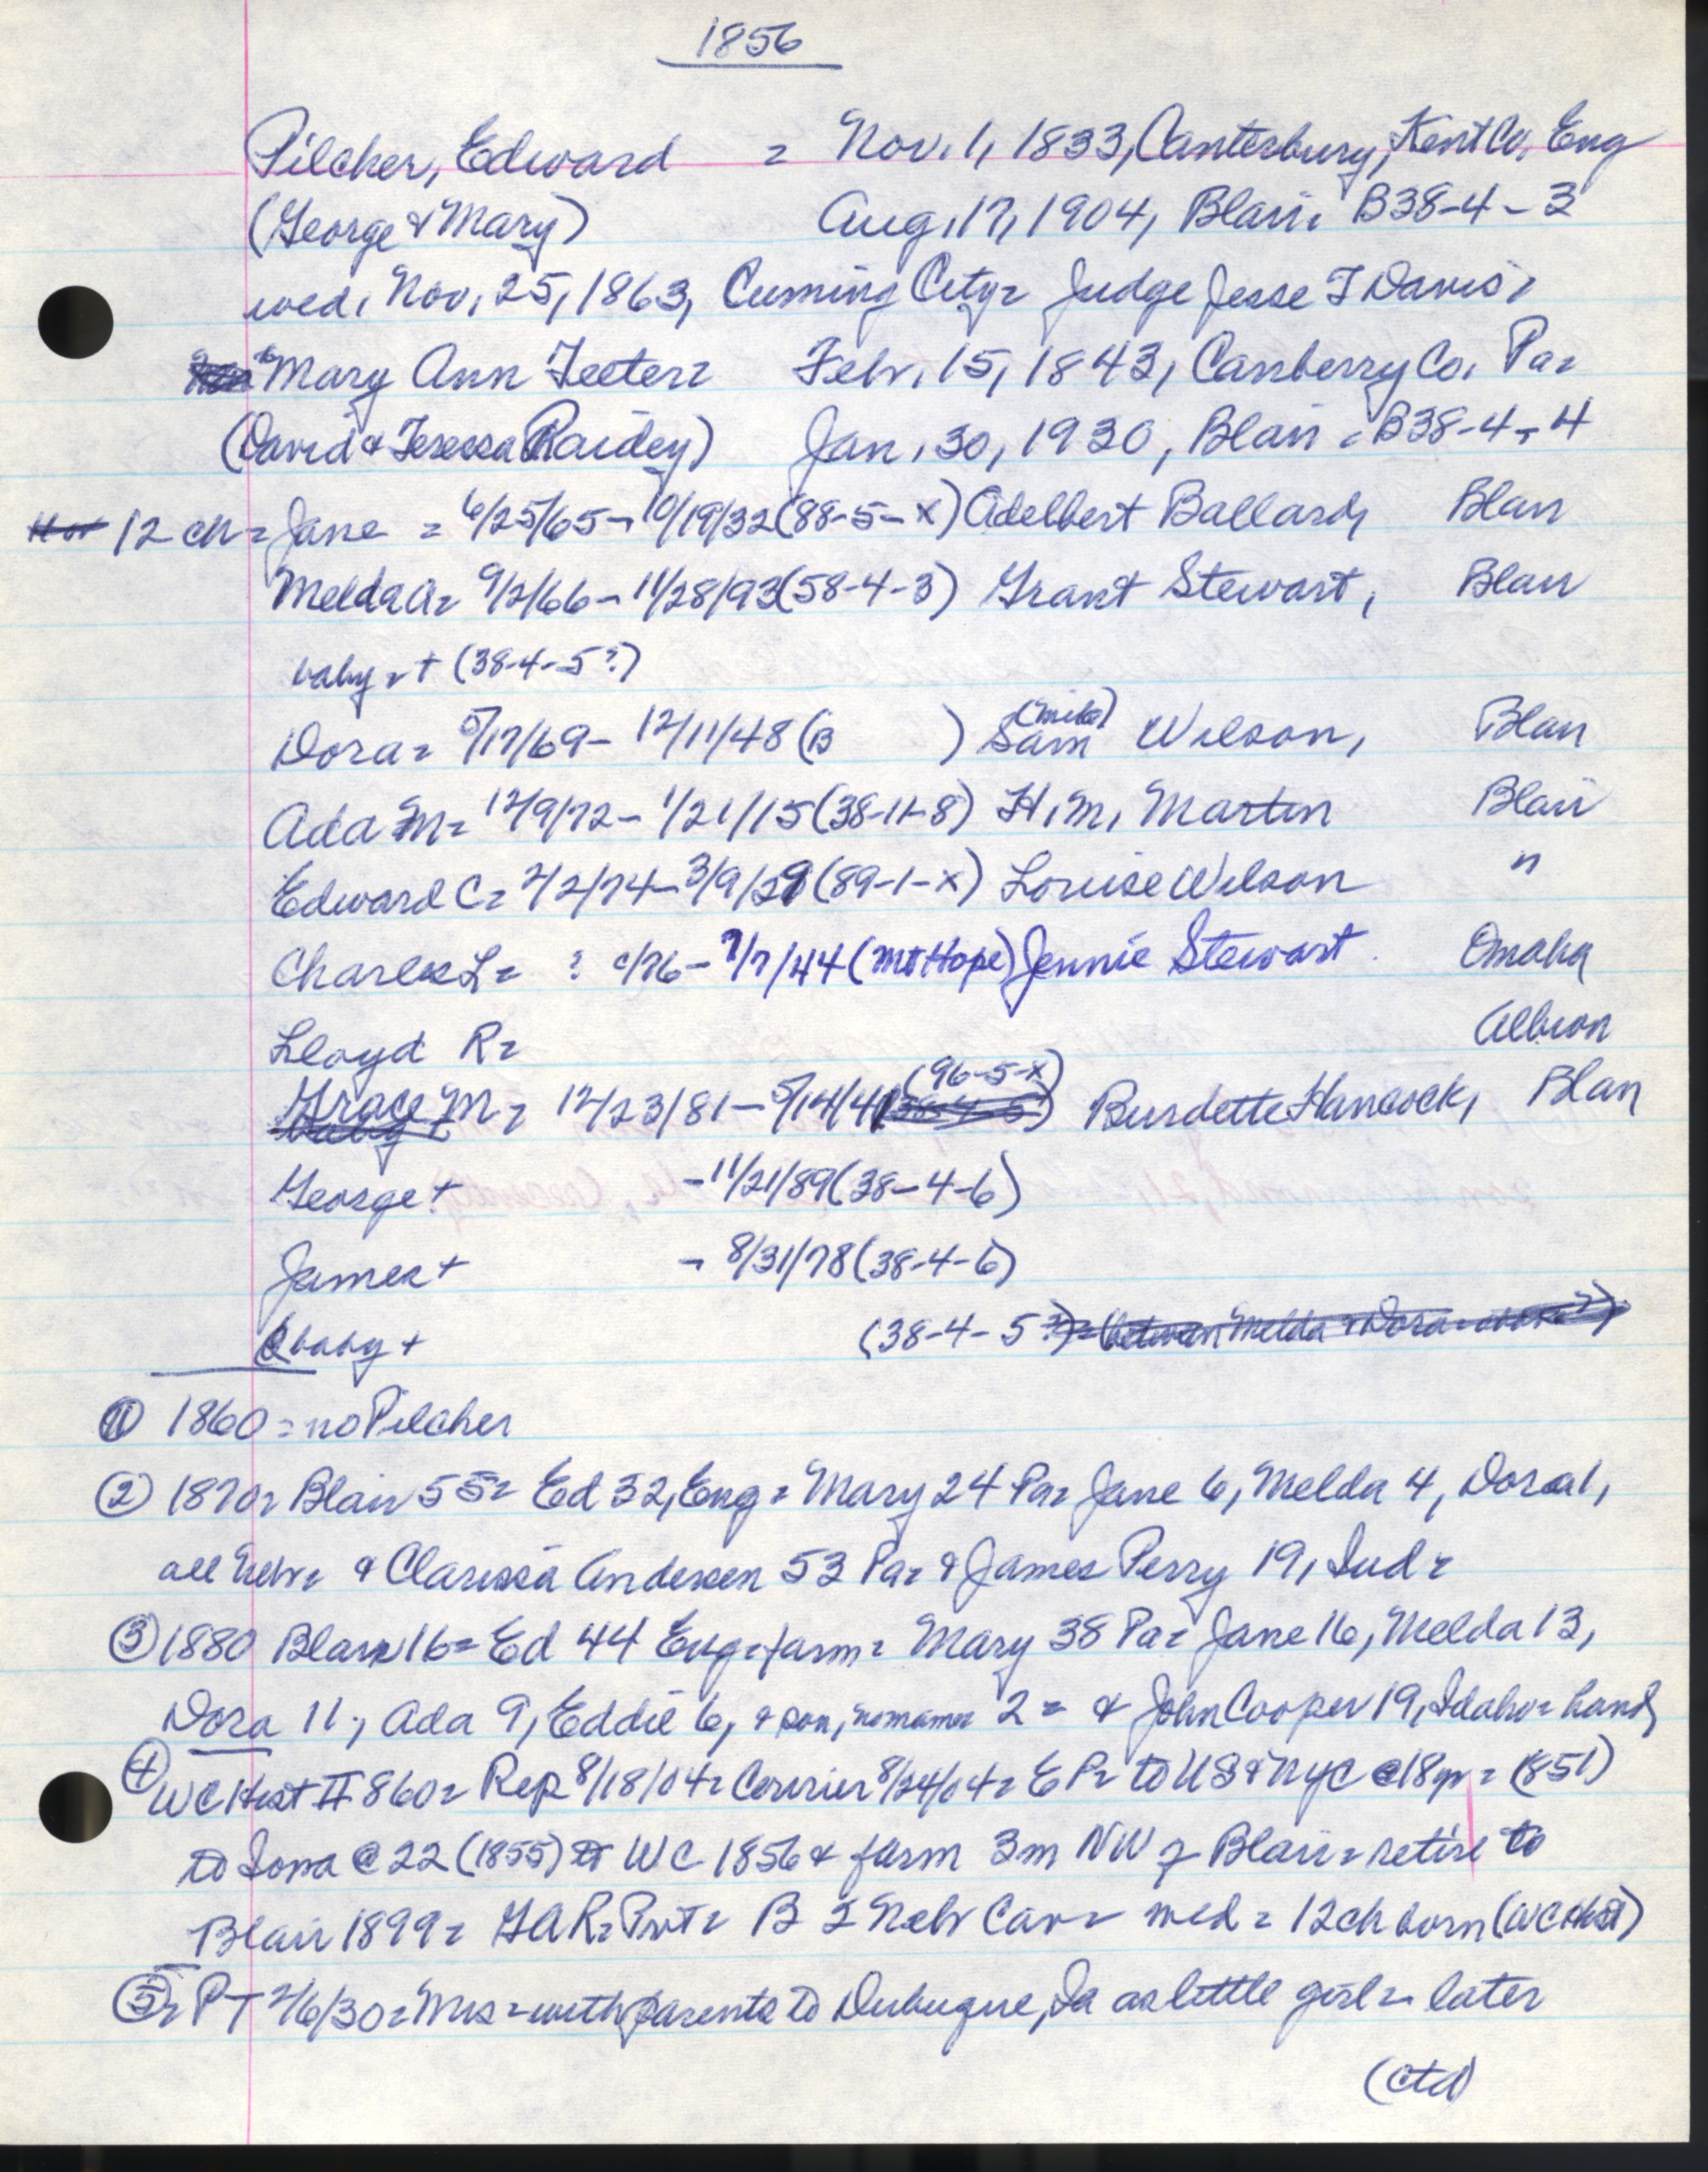 1856
Pilcher, Edward = Nov. 1, 1833, Canterbury, Kent Co, Eng
(George & Mary) Aug. 17, 1904, Blair. B38-4-3
wed. Nov. 25, 1863, Cuming City = Judge Jesse T Davis =
Mary Ann Teeter = Febr. 15, 1843, Canberry Co. Pa =
(David & Teressa Raidey) Jan. 30, 1930, Blair = B38-4-4
12 ch = Jane = 6/25/65 - 10/19/32 (88-5-x) Adelbert Ballard, Blair
Melda A = 9/2/66 - 11/28/93 (58-4-3) Grant Stewart, Blair
baby = + (38-4-5?)
Dora = 5/17/69 - 12/11/48 (B ) Sam (mike) Wilson, Blair
Ada M = 12/9/72 - 1/21/15 (38-11-8) H. M. Martin Blair
Edward C = 2/2/74 - 3/9/29 (89-1-x) Louise Wilson "
Charles L = ? c/76 - 7/7/44 (Mt Hope) Jennie Stewart. Omaha
Lloyd R = Albion
Grace M = 12/23/81 - 5/14/41 (96-5-x) Burdette Hancock, Blair
George + - 11/21/89 (38-4-6)
James + - 8/31/78 (38-4-6)
baby + (38-4-5?) = between Melda & Dora
① 1860 = no Pilcher
② 1870 = Blair 55 = Ed 32, Eng = Mary 24 Pa = Jane 6, Melda 4, Dora 1,
all Nebr = & Clarissa Andersen 53 Pa = & James Perry 19, Ind =
③ 1880 Blair 16 = Ed 44 Eng = farm = Mary 38 Pa = Jane 16, Melda 13,
Dora 11, Ada 9, Eddie 6, & son, no name 2 = & John Cooper 19, Idaho = hand
④ WC Hist II 860 = Rep 8/18/04 = Courier 8/24/04 = E P = to US & NYC @ 18 yr = (1851)
to Iowa @ 22 (1855) to WC 1856 & farm 3m NW of Blair = retire to
Blair 1899 = GAR = Pvt = B 2 Nebr Cav = wed = 12 ch born (WC Hist)
⑤ = PT 2/6/30 = Mrs = with parents to Dubuque, Ia as little girl = later
(ctd)